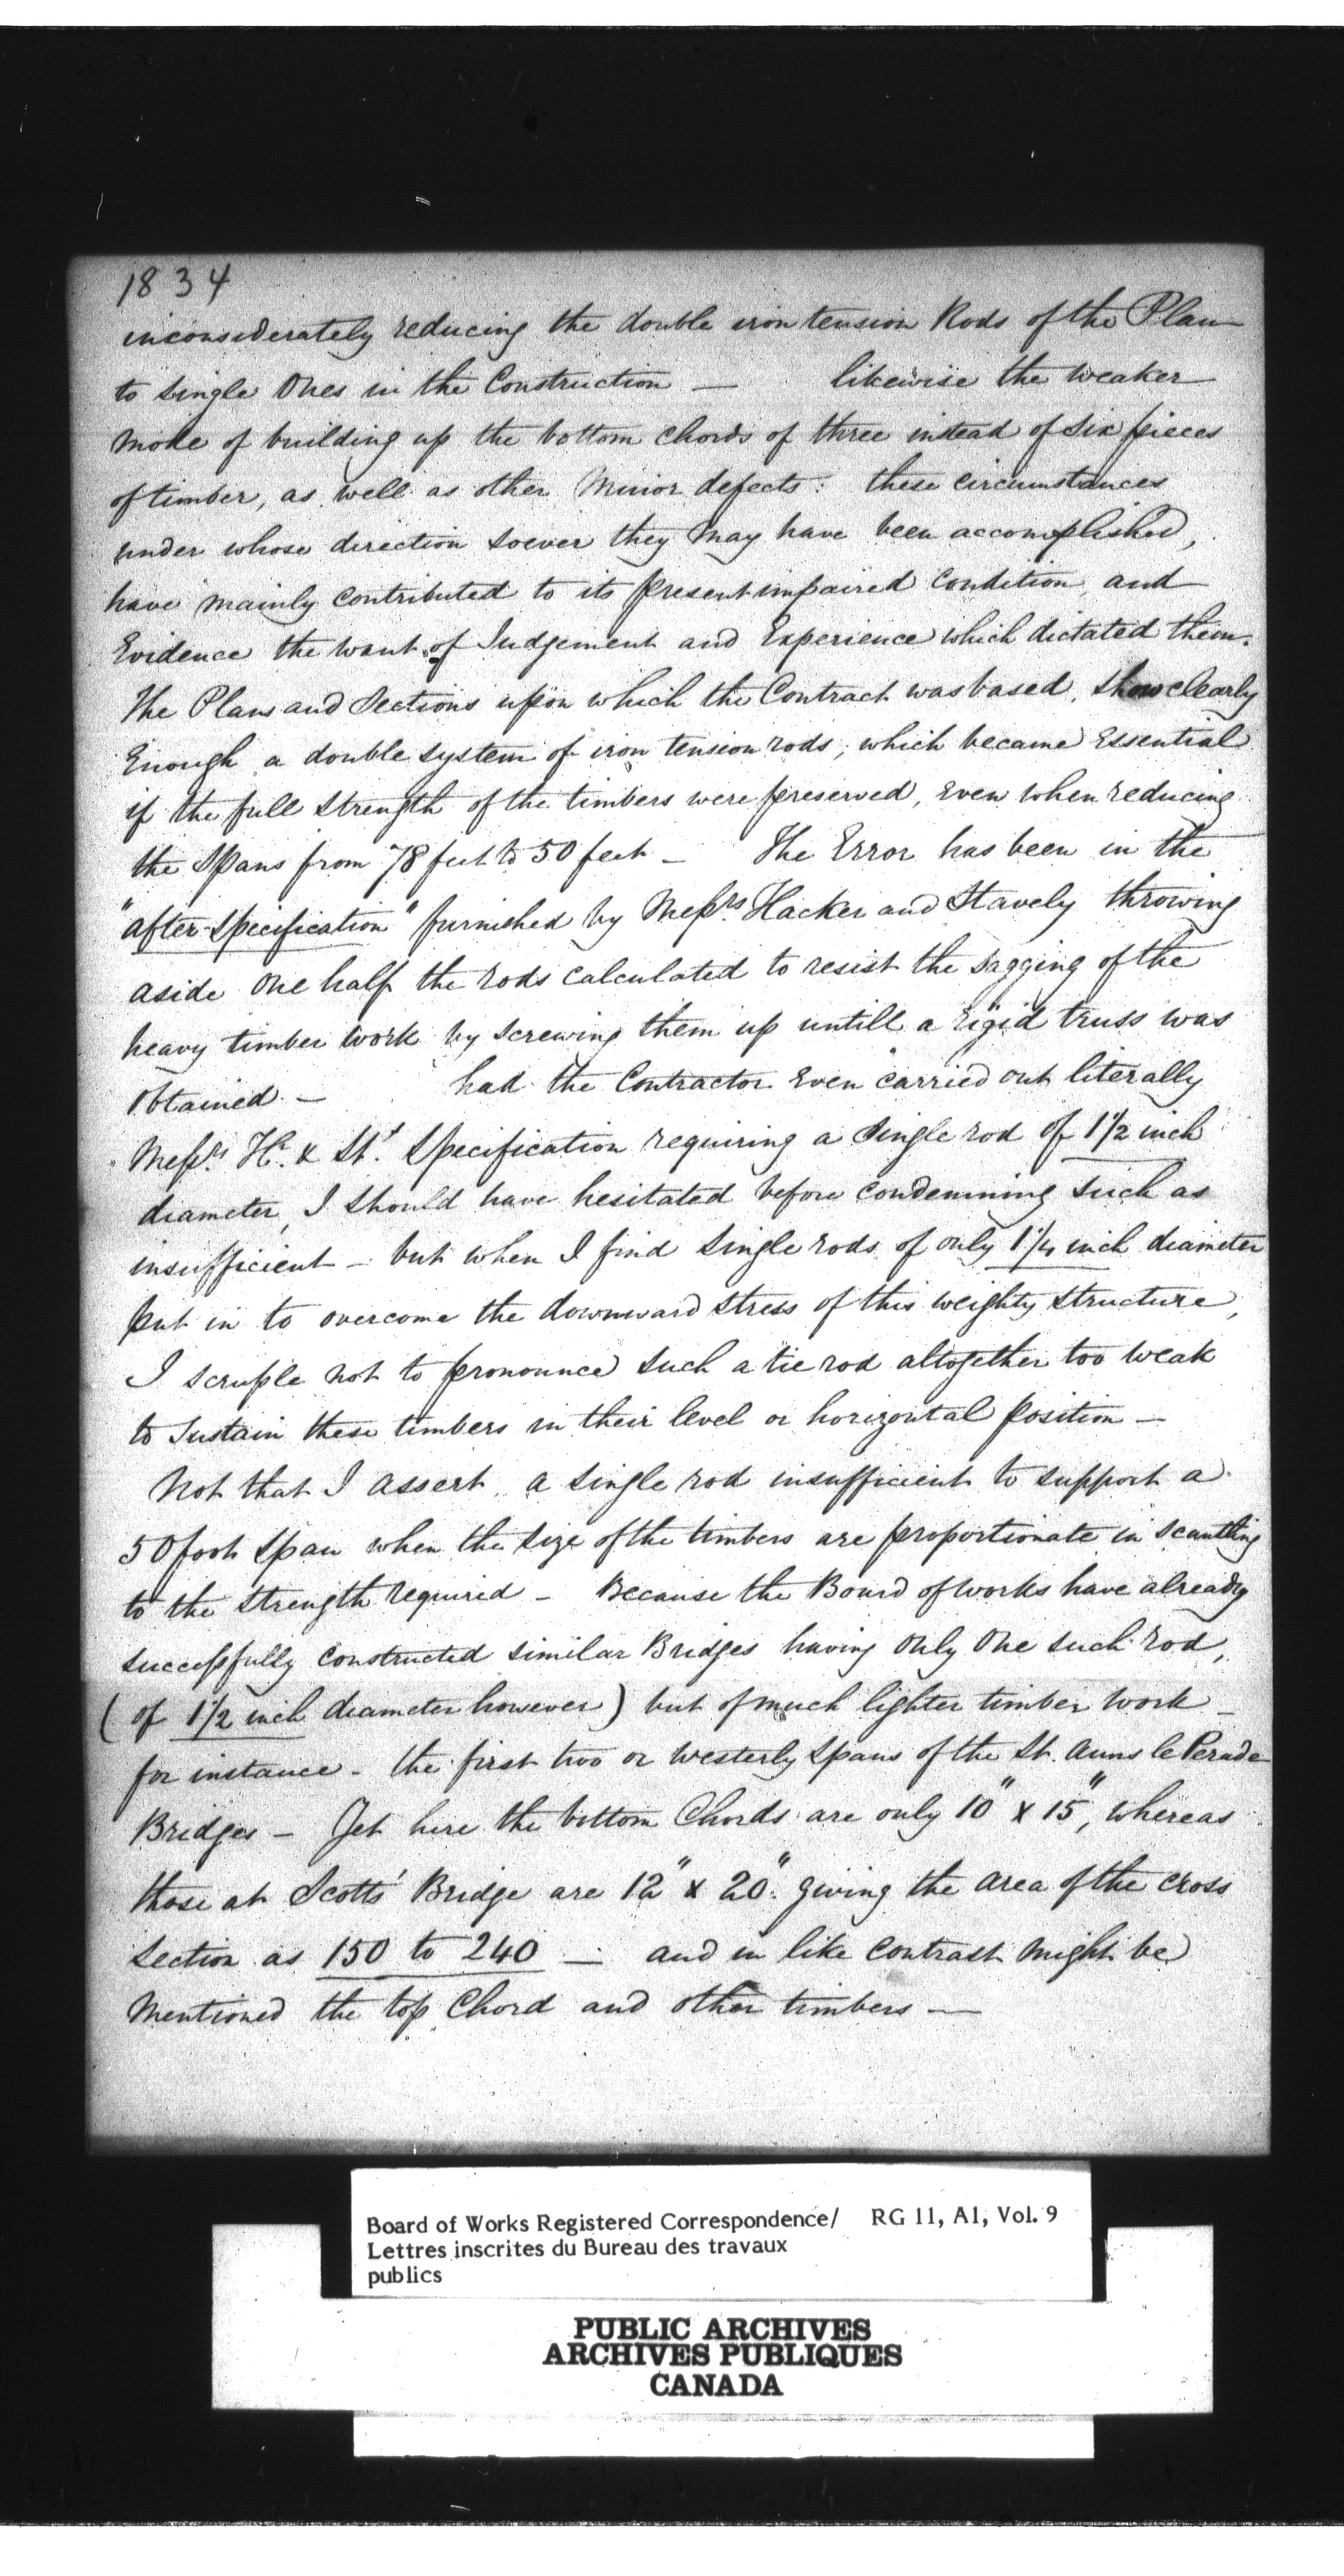 1834
inconsiderately reducing the double iron tension Rods of the Plan
to single Ones in the Construction — likewise the weaker
Mode of building up the bottom chords of three instead of six pieces
of timber, as well as other Minor defects: these circumstances
under whose direction soever they may have been accomplished,
have mainly contributed to its present impaired Condition, and
Evidence the want of Judgement and Experience which dictated them.
The Plans and Sections upon which the Contract was based, show clearly
Enough a double system of iron tension rods, which became Essential
if the full strength of the timbers were preserved, even when reducing
the Spans from 78 feet to 50 feet — The Error has been in the
"after-specification" furnished by Messrs Hacker and Stavely throwing
aside One half the rods calculated to resist the sagging of the
heavy timber work by screwing them up untill a rigid truss was
Obtained — had the Contractor Even carried out literally
Messrs H. & St's Specification requiring a single rod of 1 1/2 inch
diameter, I should have hesitated before condemning such as
insufficient — but when I find single rods of only 1 1/4 inch diameter
put in to overcome the downward stress of this weighty structure,
I scruple not to pronounce such a tie rod altogether too weak
to sustain these timbers in their level or horizontal position —
Not that I assert a single rod insufficient to support a
50 foot span when the size of the timbers are proportionate in scantling
to the strength required — Because the Board of Works have already
successfully constructed similar Bridges having Only One such rod,
(of 1 1/2 inch diameter however) but of much lighter timber work —
for instance - the first two or westerly spans of the St. Anns le Perade
Bridges — Yet here the bottom Chords are only 10" x 15", whereas
those at Scotts' Bridge are 12" x 20": giving the area of the cross
Section as 150 to 240 — and in like contrast might be
Mentioned the top Chord and other timbers —
Board of Works Registered Correspondence/ RG 11, A1, Vol. 9
Lettres inscrites du Bureau des travaux
publics
PUBLIC ARCHIVES
ARCHIVES PUBLIQUES
CANADA